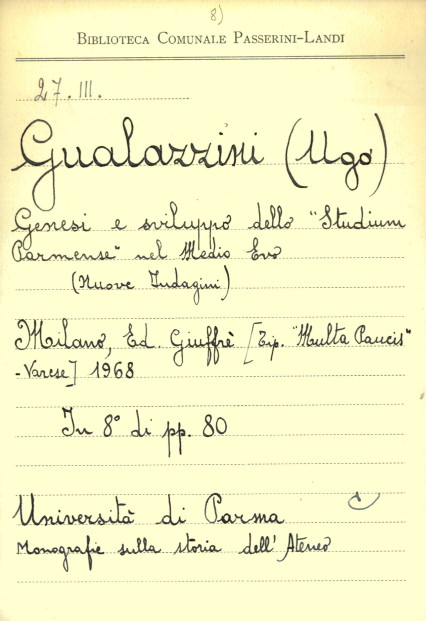 8)
BIBLIOTECA COMUNALE PASSERINI-LANDI
27. III.
Gualazzini (Ugo)
Genesi e sviluppo dello "Studium
Parmense" nel Medio Evo
(Nuove Indagini)
Milano, Ed. Giuffrè [Tip. "Multa Paucis"
- Varese] 1968
In 8° di pp. 80
Università di Parma
Monografie sulla storia dell' Ateneo